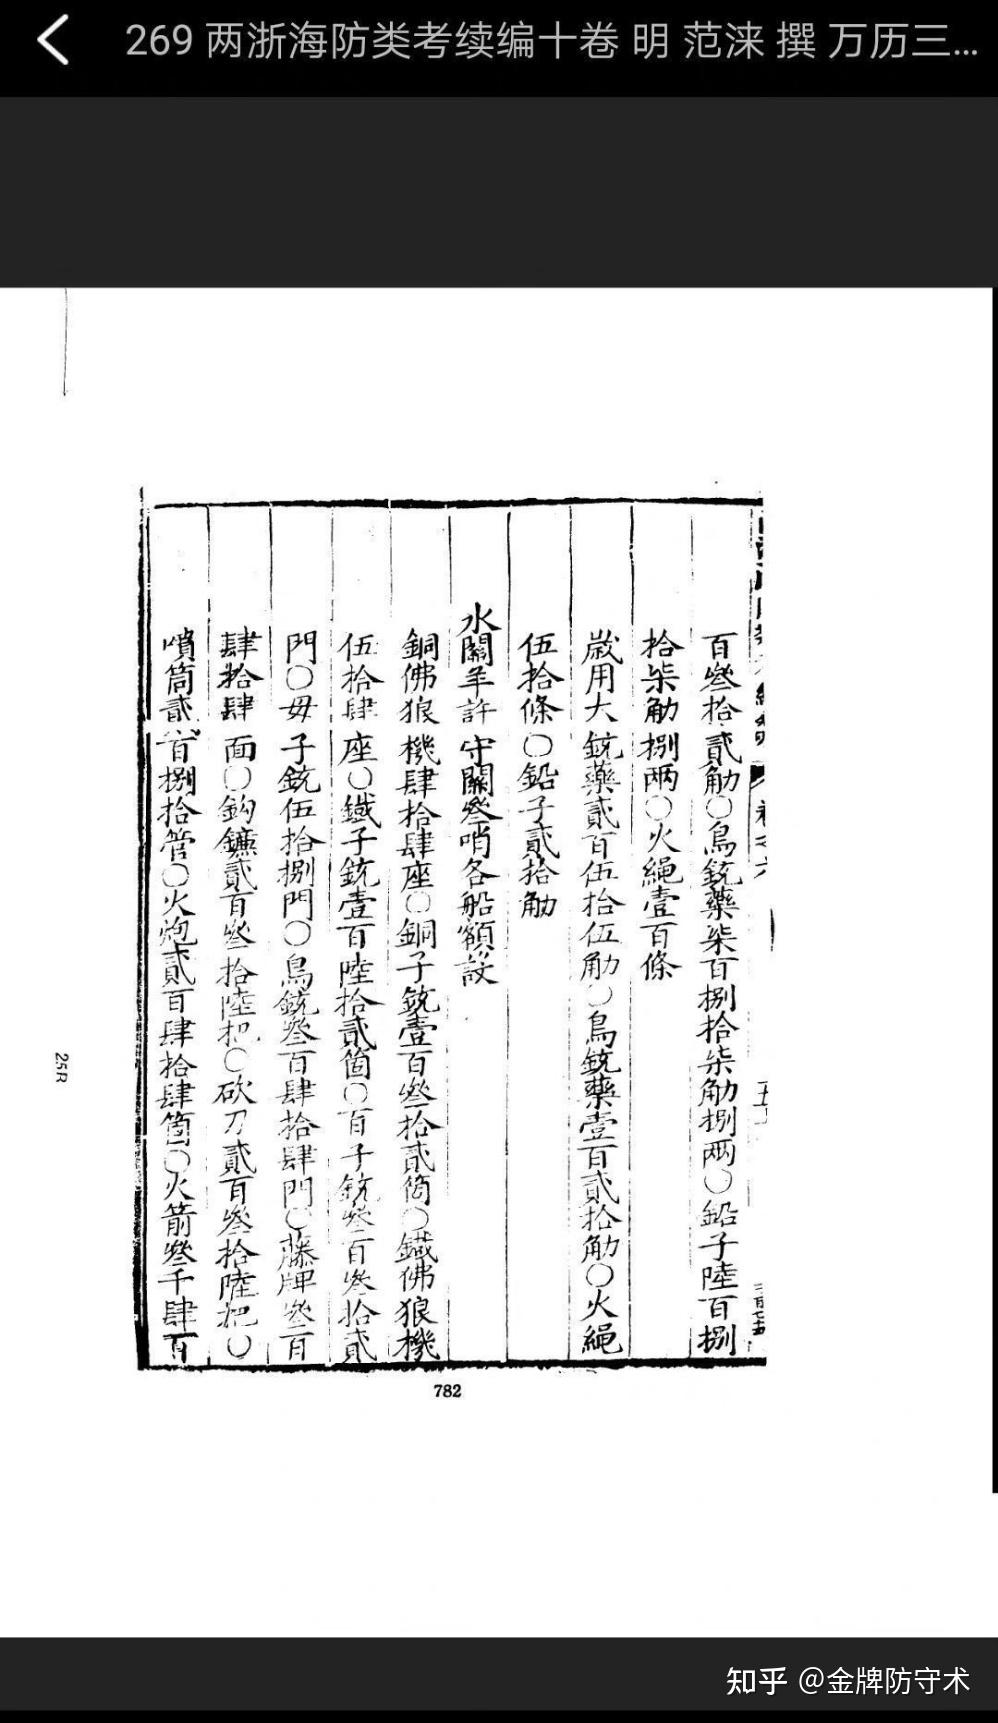 269 两浙海防类考续编十卷 明 范涞 撰 万历三…
百叁拾貳觔○鳥銃藥柒百捌拾柒觔捌兩○鉛子陸百捌
拾柒觔捌兩○火繩壹百條
歲用大銃藥貳百伍拾伍觔○鳥銃藥壹百貳拾觔○火繩
伍拾條○鉛子貳拾觔
水關羊許守關叄哨各船額設
銅佛狼機肆拾肆座○銅子銃壹百叄拾貳箇○鐵佛狼機
伍拾肆座○鐵子銃壹百陸拾貳箇○百子銃叄百叄拾貳
門○毋子銃伍拾捌門○鳥銃叄百肆拾肆門○藤牌叄百
肆拾肆面○鈎鐮貳百叄拾陸把○砍刀貳百叄拾陸把○
噴筒貳百捌拾管○火炮貳百肆拾肆箇○火箭叄千肆百
782
25R
知乎 @金牌防守术